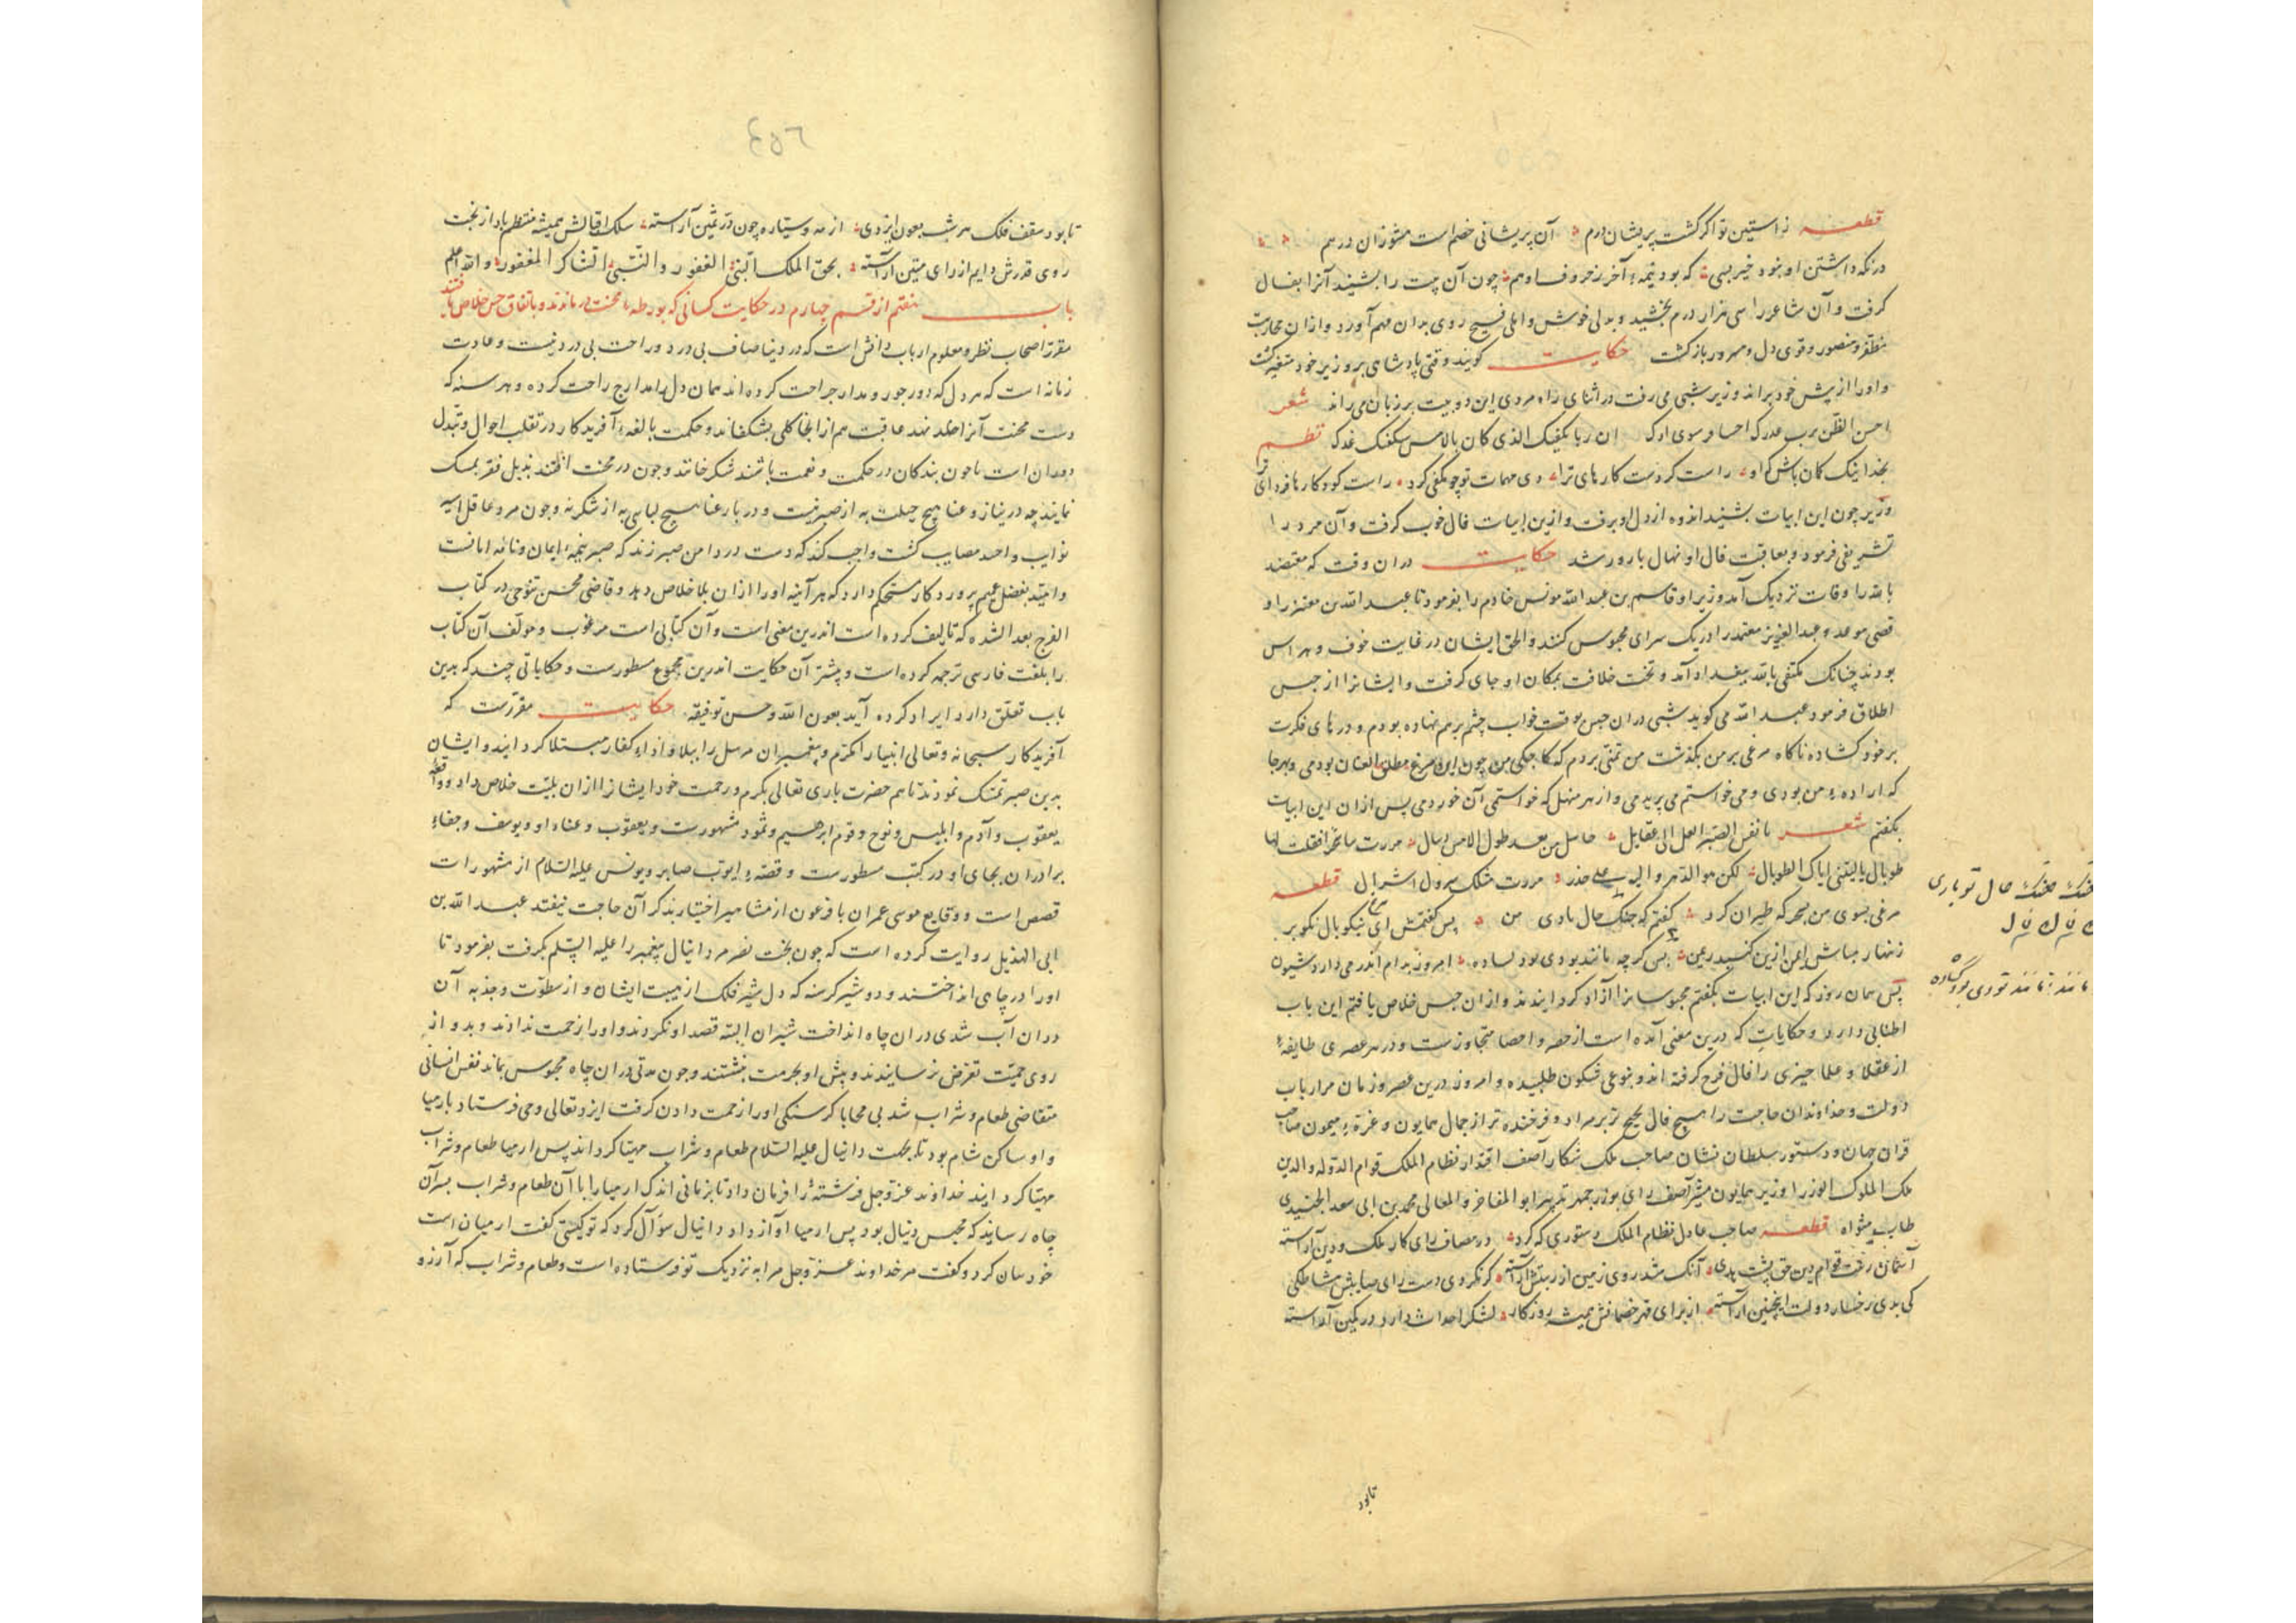 قطعه ز آستین تو اگر گشت پریشان درم آن پریشانی خصم است مشو زان درهم
در نکه داشتن او بنود خیر بسی که بود نیمهٔ آخر ز حروفسا و هم چون آن بیت را بشنید آنرا بفال
کرفت و آن شاعر را سی هزار درم بخشید و بدلی خوش و املی فسیح روی بدان مهم آورد و ازان محاربت
مظفر و منصور و قوی دل و مسرور بازکشت حکایت کویند وقتی پادشاهی بر وزیر خود متغیر کشت
و او را از پیش خود براند وزیر شبی می رفت در اثنای راه مردی این دو بیت بر زبان می راند شعر
احسن الظن برب عودک ان ربا یکفیک الذی کان بالامس سیکفیک غدک نظم
بخدا نیک کمان باش که او راست کردست کارهای ترا دی مهمات تو چو مکفی کرد راست کو کارها فردای ترا
وزیر چون این ابیات بشنید اندوه از دل او برفت و ازین ابیات فال خوب کرفت و آن مرد را
تشریفی فرمود و بعاقبت فال او نهال بارور شد حکایت دران وقت که معتضد
بالله را وفات نزدیک آمد وزیر او قاسم بن عبد الله مونس خادم را بفرمود تا عبد الله بن معتز را و
قصی موید و عبد العزیز معتمد را در یک سرای محبوس کنند و الحق ایشان در غایت خوف و هراس
بودند چنانک مکتفی بالله ببغداد آمد و تخت خلافت بمکان او جای کرفت و ایشانرا از حبس
اطلاق فرمود عبد الله می کوید شبی دران حبس بوقت خواب چشم برهم نهاده بودم و درهای فکرت
بر خود کشاده ناکاه مرغی بر من بکذشت من تمنی بردم که کاجکی من چون این مرغ مطلق العنان بودمی و بهرجا
که اراده من بودی و می خواستم می پریدمی و از هر منهل که خواستمی آن خوردمی پس ازان این ابیات
بکفتم شعر یا نفس الصبر العل الی عقایل حاسل من بعد طول الامس ایسال مررت بنا سحرا فقلت لها
طوبال یالیتنی ایاک الطوبال لکن هو الدهر و الیه علی حذر مررت مثلک قطعه
مرغی بسوی من بسحرکه طیران کرد کفتم که خنک حال بادی من پس کفتمش ای مرغ نیکو بال نکو پر
زنهار مباش ایمن ازین کنبد ریمن بس کرچه مانند بودی بود لساده امروز بدام اندر می دارد شیون
پس همان روز که این ابیات بکفتم محبوسانرا آزاد کردانیدند و ازان حبس خلاص یافتم این باب
اطنابی دارد و حکایات که درین معنی آمده است از حصر و احصا متجاوزست و در هر عصری طایفهٔ
از عقلا و علما چیزی را فال فرح کرفته اند و بنوعی شکون طلبیده و امروز درین عصر و زمان مر ارباب
دولت و خداوندان حاجت را هیچ فال نجیح تر بر مراد و فرخنده تر از جمال همایون و غرهٔ میمون صاحب
قران جهان و دستور سلطان نشان صاحب ملک شکار آصف اقتدار نظام الملک قوام الدوله والدین
ملک الملوک الوزرا وزیر همایون مشیر آصف رای بوزرجمهر تدبیر ابو المفاخر و المعالی محمد بن ابی سعد الجنیدی
طاب مثواه قطعه صاحب عادل نظام الملک دستوری که کرد در مصاف رای کار ملک و دین آراسته
آسمان رفعت قوام دین حق پشت هدی آنک شد روی زمین از ریتش آراسته کر نکردی دست رای صایبش مشاطکی
کی بدی رخسار دولت اینچنین آراسته از برای قهر خصمانش همیشه روزکار لشکر احداث دارد در کمین آراسته
تابود
خنک خنک حال تو باری
مانند مانند تو دی بود کشاده
٤٥٦
تا بود سقف فلک هر شب بعون ایزدی از مه و ستاره چون در ثمین آراسته سلک اقبالش همیشه منتظم باد از بخت
روی قدرش دایم از رای متین آراسته بحق الملک الغفور والنبی الشاکر المغفور والله اعلم
باب هفتم از قسم چهارم در حکایت کسانی که بورطهٔ محنت درماندند و باتفاق حسن خلاص یافتند
مقرر اصحاب نظر و معلوم ارباب دانش است که در دنیا صاف بی درد و راحت بی درد نیست و عادت
زمانه است که هر دل که دور جور و مدار جراحت کرده اند همان دل را مدارج راحت کرده و هر سنه که
دست محنت آنرا حلد نهد عاقبت هم از انجا کلی بشکفاند و حکمت بالغهٔ آفریدکار در تقلب احوال و تبدل
دوران است تا چون بندکان در حکمت و نعمت باشند شکر خانند و چون در محنت افتند بذیل فقر تمسک
نمایند چه در نیاز و عنا هیچ حیلت به از صبر نیست و در بار عنا هیچ لباسی به از شکر نه و چون مرد عاقل اسیر
نوایب و اسد مصایب کشت واجب کند که دست در دامن صبر زند که صبر نیمهٔ ایمان و نامهٔ امانست
و امید بفضل عمیم پروردکار مستحکم دارد که هر آینه او را ازان بلا خلاص دهد و قاضی محسن تنوخی در کتاب
الفرج بعد الشده که تالیف کرده است اندرین معنی است و آن کتابی است مرغوب و مولف آن کتاب
را بلغت فارسی ترجمه کرده است و بیشتر آن حکایت اندرین مجموع مسطورست و حکایاتی چند که بدین
باب تعلق دارد ایراد کرده آید بعون الله و حسن توفیقه حکایت مقررست که
آفریدکار سبحانه و تعالی انبیاء مکرم و پیغمبران مرسل را ببلا و اذاء کفار مبتلا کردانید و ایشان
بدین صبر تمسک نمودند تا هم حضرت باری تعالی بکرم و رحمت خود ایشانرا ازان بلیت خلاص داد و واقعه
یعقوب و آدم و ابلیس و نوح و قوم ابرهیم و نمرود مشهورست و یعقوب و عناء او و یوسف و جفاء
برادران بجای او در کتب مسطورست و قصهٔ ایوب صابر و یونس علیه السلام از مشهورات
قصص است و وقایع موسی عمران با فرعون از مشاهیر اخبار بذکر آن حاجت نیفتد عبد الله بن
ابی الهذیل روایت کرده است که چون بخت نصر مر دانیال پیغمبر را علیه السلم بکرفت بفرمود تا
او را در چاهی انداختند و دو شیر کرسنه که دل شیر فلک از هیبت ایشان و از سطوت و جذبه آن
دران آب شدی دران چاه انداخت شیران البته قصد او نکردند و او را زحمت ندادند و بدو از
روی حمیت تعرض نرسانیدند و پیش او بحرمت بنشستند و چون مدتی دران چاه محبوس بماند نفس انسانی
متقاضی طعام و شراب شد بی محابا کرسنکی او را زحمت دادن کرفت ایزد تعالی وحی فرستاد بارمیا
و او ساکن شام بود تا بجهت دانیال علیه السلام طعام و شراب مهیا کرداند پس ارمیا طعام و شراب
مهیا کردانید خداوند عز و جل فرشتهٔ را فرمان داد تا بزمانی اندک ارمیا را با آن طعام و شراب بسر آن
چاه رسانید که محبس دنیال بود پس ارمیا آواز داد دانیال سوآل کرد که تو کیستی کفت ارمیا ن است
خود سان کرد و کفت مر خداوند عز و جل مرا به نزدیک تو فرستاده است و طعام و شراب که آرزو